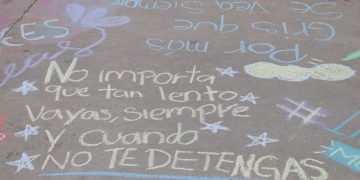 No importa
que tan lento
Vayas, siempre
y cuando
NO TE DETENGAS
Por mas
Gris que
se vea siempre